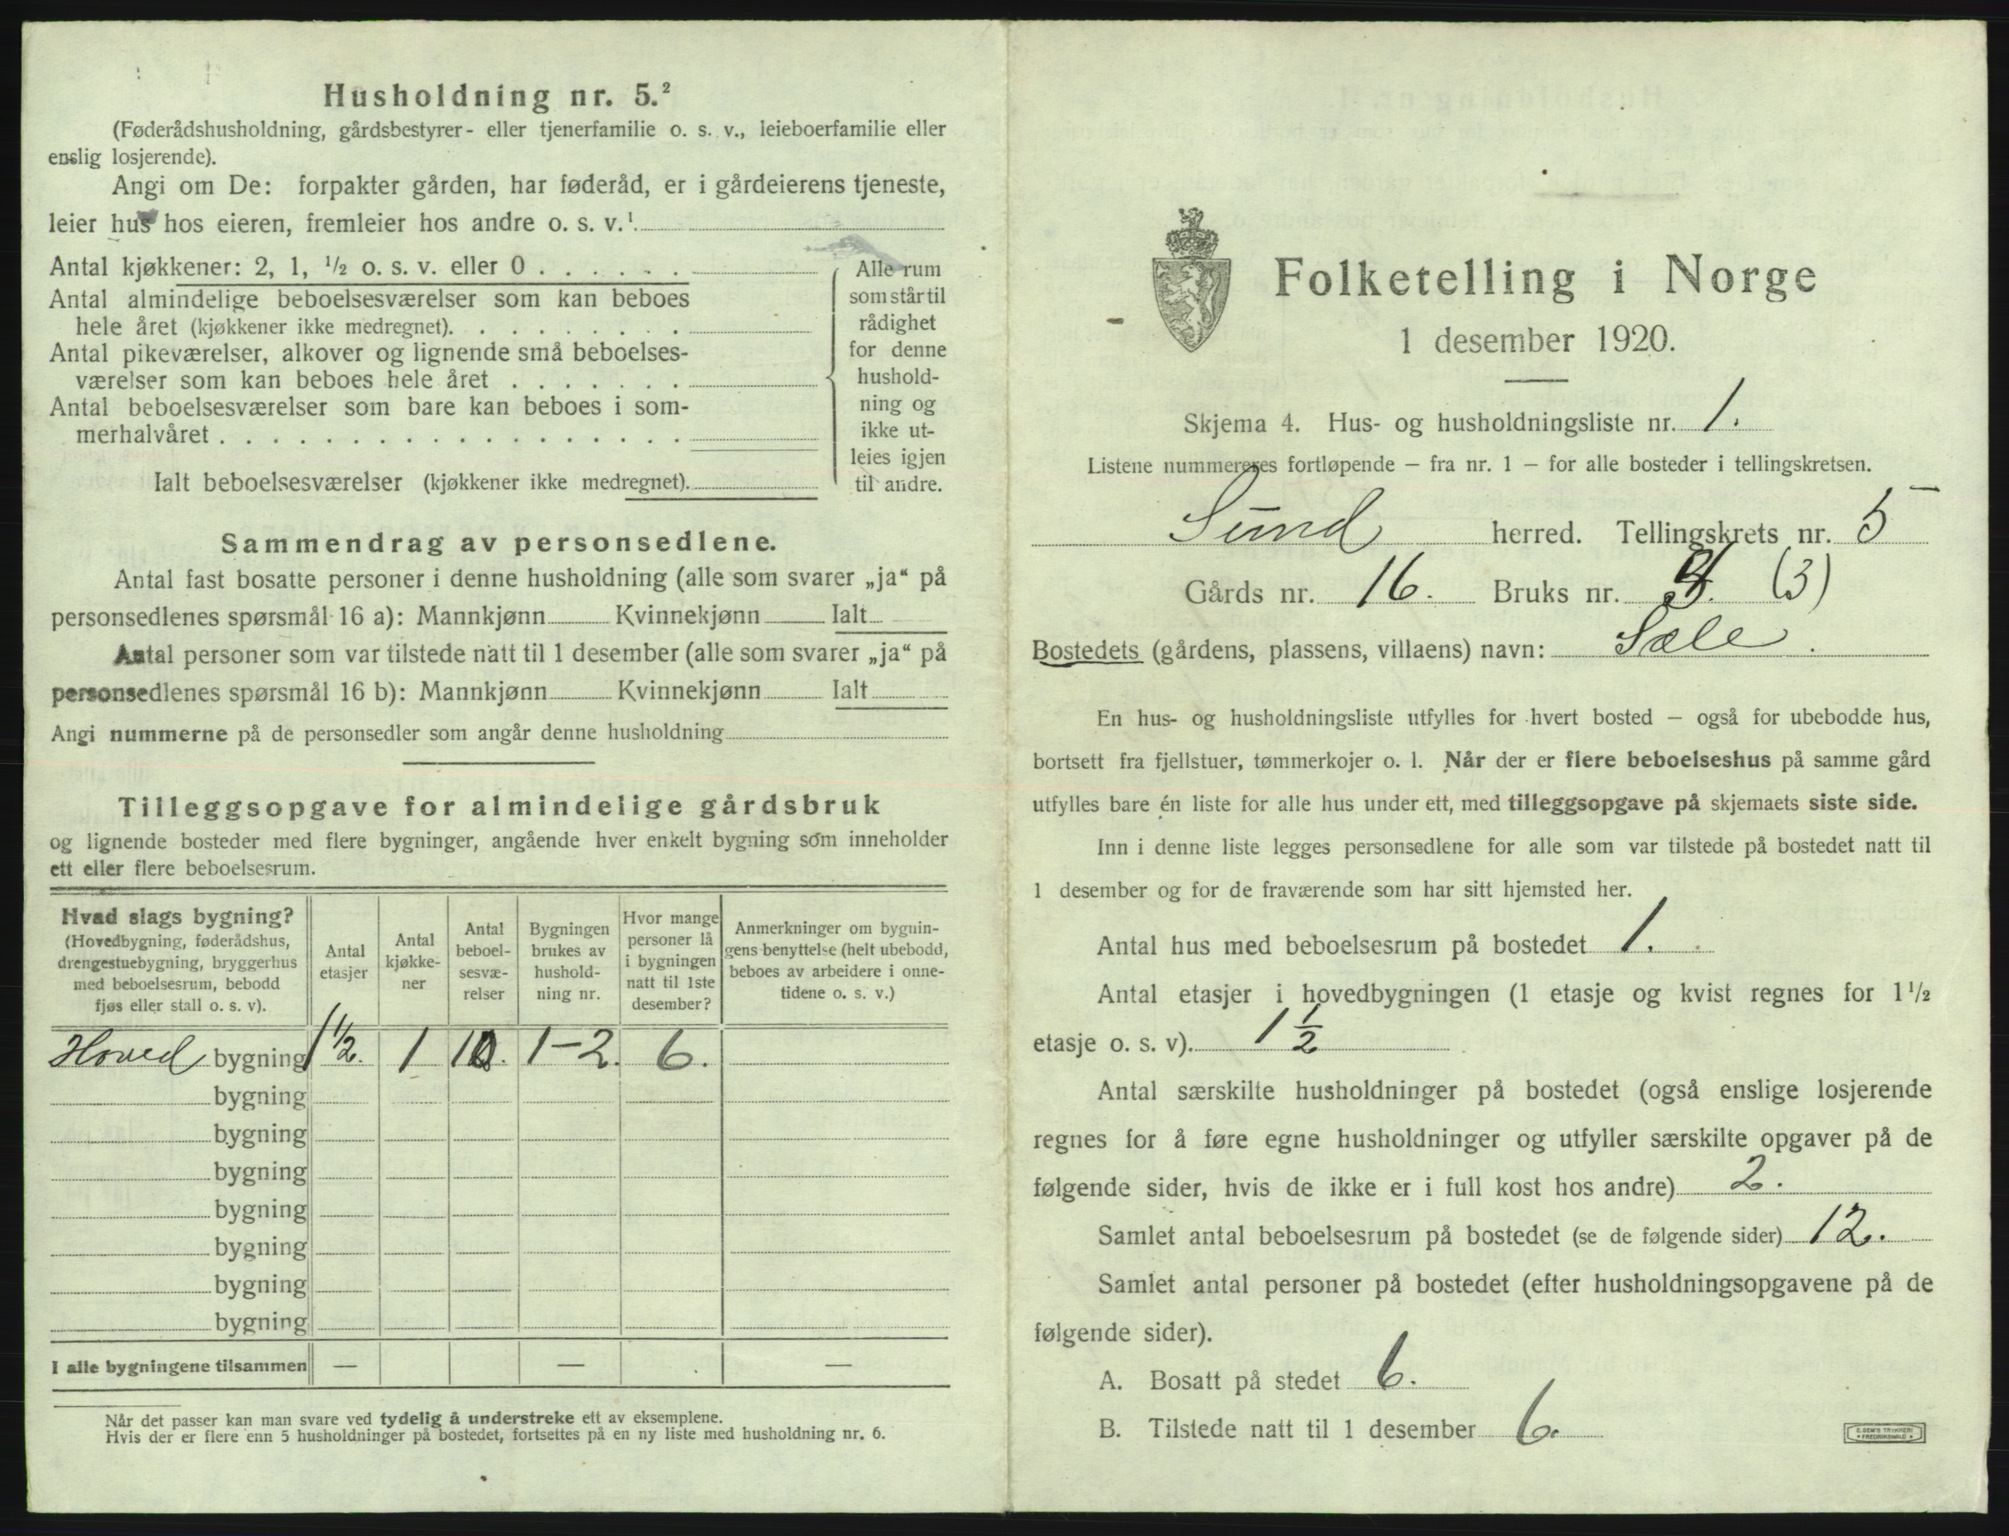 Husholdning nr. 5.²
(Føderådshusholdning, gårdsbestyrer- eller tjenerfamilie o. s. v., leieboerfamilie eller
enslig losjerende).
Angi om De: forpakter gården, har føderåd, er i gårdeierens tjeneste,
leier hus hos eieren, fremleier hos andre o. s. v.¹
Antal kjøkkener: 2, 1, ½ o. s. v. eller 0 . . . . . .
Antal almindelige beboelsesværelser som kan beboes
hele året (kjøkkener ikke medregnet). . . . . . . . .
Antal pikeværelser, alkover og lignende små beboelses-
værelser som kan beboes hele året . . . . . . .
Antal beboelsesværelser som bare kan beboes i som-
merhalvåret . . . . . . . . . . . . . . . . . .
Ialt beboelsesværelser (kjøkkener ikke medregnet).
Alle rum
som står til
rådighet
for denne
hushold-
ning og
ikke ut-
leies igjen
til andre.
Sammendrag av personsedlene.
Antal fast bosatte personer i denne husholdning (alle som svarer „ja“ på
personsedlenes spørsmål 16 a): Mannkjønn Kvinnekjønn Ialt
Antal personer som var tilstede natt til 1 desember (alle som svarer „ja“ på
personsedlenes spørsmål 16 b): Mannkjønn Kvinnekjønn Ialt
Angi nummerne på de personsedler som angår denne husholdning
Tilleggsopgave for almindelige gårdsbruk
og lignende bosteder med flere bygninger, angående hver enkelt bygning som inneholder
ett eller flere beboelsesrum.
Hvad slags bygning?
(Hovedbygning, føderådshus,
drengestuebygning, bryggerhus
med beboelsesrum, bebodd
fjøs eller stall o. s. v).
Antal
etasjer
Antal
kjøkke-
ner
Antal
beboel-
sesvæ-
relser
Bygningen
brukes av
hushold-
ning nr.
Hvor mange
personer lå
i bygningen
natt til 1ste
desember?
Anmerkninger om bygnin-
gens benyttelse (helt ubebodd,
beboes av arbeidere i onne-
tidene o. s. v.)
Hoved bygning 1½. 1 10. 1-2. 6.
bygning
bygning
bygning
bygning
bygning
bygning
bygning
I alle bygningene tilsammen — — —
Når det passer kan man svare ved tydelig å understreke ett av eksemplene.
Hvis der er flere enn 5 husholdninger på bostedet, fortsettes på en ny liste med husholdning nr. 6.
Folketelling i Norge
1 desember 1920.
Skjema 4. Hus- og husholdningsliste nr. 1.
Listene nummereres fortløpende – fra nr. 1 – for alle bosteder i tellingskretsen.
Sund herred. Tellingskrets nr. 5
Gårds nr. 16. Bruks nr. (3)
Bostedets (gårdens, plassens, villaens) navn: Sæle.
En hus- og husholdningsliste utfylles for hvert bosted – også for ubebodde hus,
bortsett fra fjellstuer, tømmerkojer o. l. Når der er flere beboelseshus på samme gård
utfylles bare én liste for alle hus under ett, med tilleggsopgave på skjemaets siste side.
Inn i denne liste legges personsedlene for alle som var tilstede på bostedet natt til
1 desember og for de fraværende som har sitt hjemsted her.
Antal hus med beboelsesrum på bostedet 1.
Antal etasjer i hovedbygningen (1 etasje og kvist regnes for 1½
etasje o. s. v). 1½
Antal særskilte husholdninger på bostedet (også enslige losjerende
regnes for å føre egne husholdninger og utfyller særskilte opgaver på de
følgende sider, hvis de ikke er i full kost hos andre) 2.
Samlet antal beboelsesrum på bostedet (se de følgende sider) 12.
Samlet antal personer på bostedet (efter husholdningsopgavene på de
følgende sider).
A. Bosatt på stedet 6.
B. Tilstede natt til 1 desember 6.